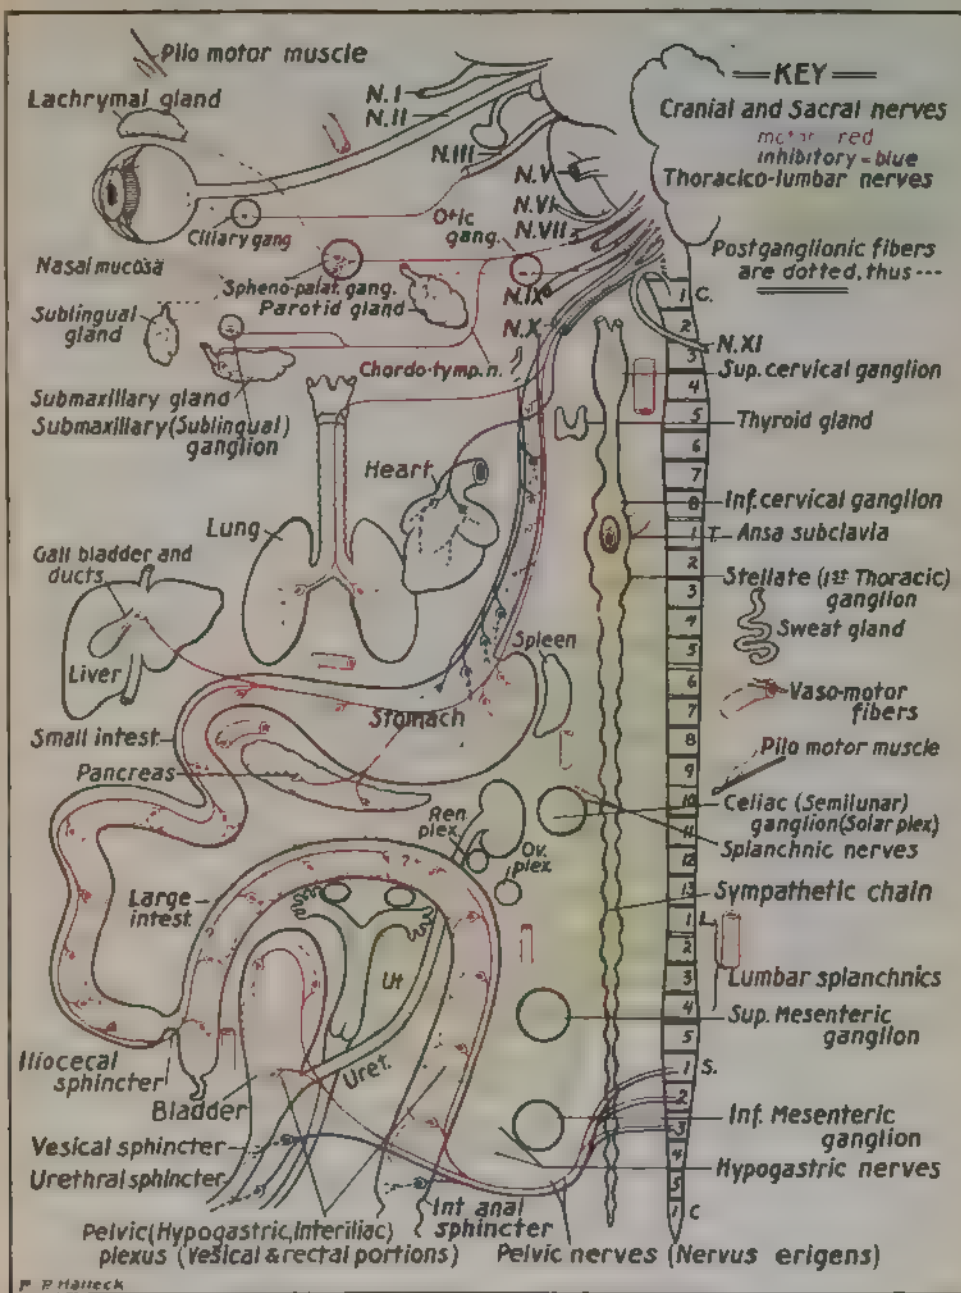 Pilo motor muscle
Lachrymal gland
N.I
N.II
N.III
N.V
N.VI
N.VII
Otic
gang.
Ciliary gang
Nasal mucosa
Spheno-palat. gang.
Parotid gland
N.IX
N.X
Sublingual
gland
Chordo-tymp. n.
Submaxillary gland
Submaxillary (Sublingual)
ganglion
Heart
Lung
Gall bladder and
ducts
Liver
Spleen
Stomach
Small intest.
Pancreas
Ren
plex.
Ov.
plex.
Large
intest.
?
Ut
Uret.
Iliocecal
sphincter
Bladder
Vesical sphincter
Urethral sphincter
Int anal
sphincter
Pelvic (Hypogastric, Interiliac)
plexus (Vesical & rectal portions)
Pelvic nerves (Nervus erigens)
KEY
Cranial and Sacral nerves
motor red
inhibitory = blue
Thoracico-lumbar nerves
Postganglionic fibers
are dotted, thus ---
N.XI
Sup. cervical ganglion
Thyroid gland
Inf. cervical ganglion
Ansa subclavia
Stellate (1st Thoracic)
ganglion
Sweat gland
Vaso-motor
fibers
Pilo motor muscle
Celiac (Semilunar)
ganglion (Solar plex)
Splanchnic nerves
Sympathetic chain
Lumbar splanchnics
Sup. Mesenteric
ganglion
Inf. Mesenteric
ganglion
Hypogastric nerves
1 C.
2
3
4
5
6
7
8
1 T.
2
3
4
5
6
7
8
9
10
11
12
13
1 L
2
3
4
5
1 S.
2
3
4
5
1 C